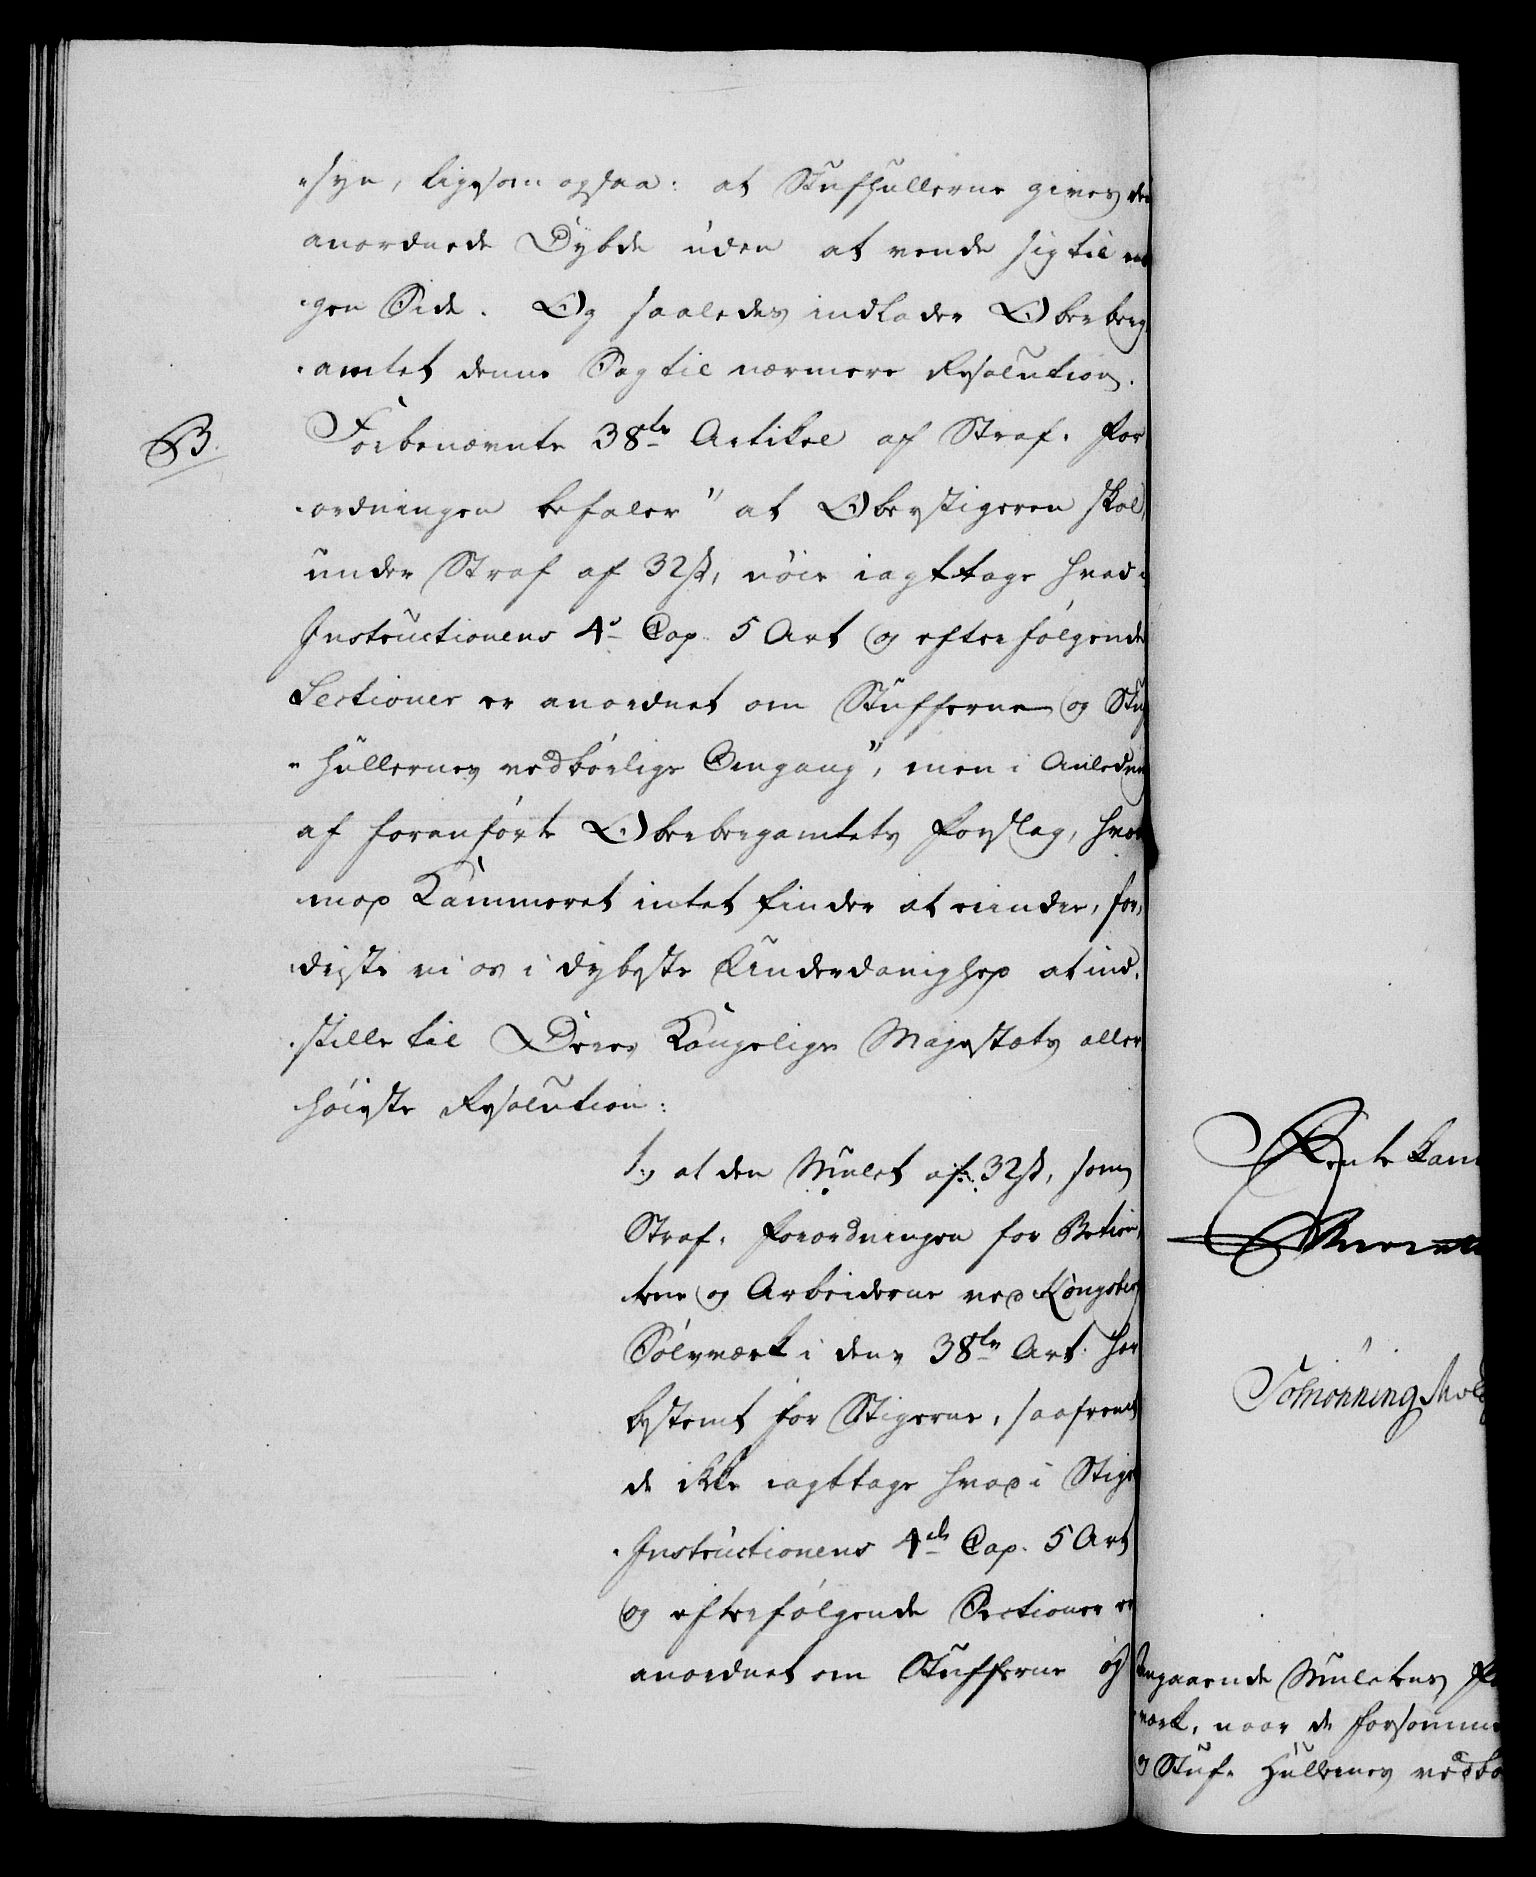 -syn, ligesom ogsaa: at Stufhullerne gives den
anordnede Dybde uden at vende sig til no
gen Side. Og saaledes indlader Oberberg-
-amtet denne Sag til nærmere Resolution.
B. Forbenævnte 38te Artikel af Straf-For
-ordningen befaler "at Oberstigeren skal,
under Straf af 32 sk, nöie iagttage hvad i
Instructionens 4de Cap. 5 Art og efterfölgende
Sectioner er anordnet om Stufferne og Stuf
-hullernes vedbörlige Omgang", men i Anledning
af foranförte Oberbergamtets Forslag, hvor
mod Kammeret intet finder at erindre, for,
driste vi os i dybeste Underdanighed at ind-
-stille til Deres Kongelige Majestæts aller
höieste Resolution:
1, at den Mulct af 32 sk, som
Straf-Forordningen for Betien,
tere og Arbeiderne ved Kongsberg
Sölvværk i dens 38te Art. har
bestemt for Stigerne, saafremt
de ikke iagttage hvad i Stiger
-Instructionens 4de Cap. 5 Art
og efterfölgende Sectioner er
anordnet om Stufferne og
Rentekam
Angaaende Mulctens
værk, naar de forsömme
og Stuf-Hullernes vedbö